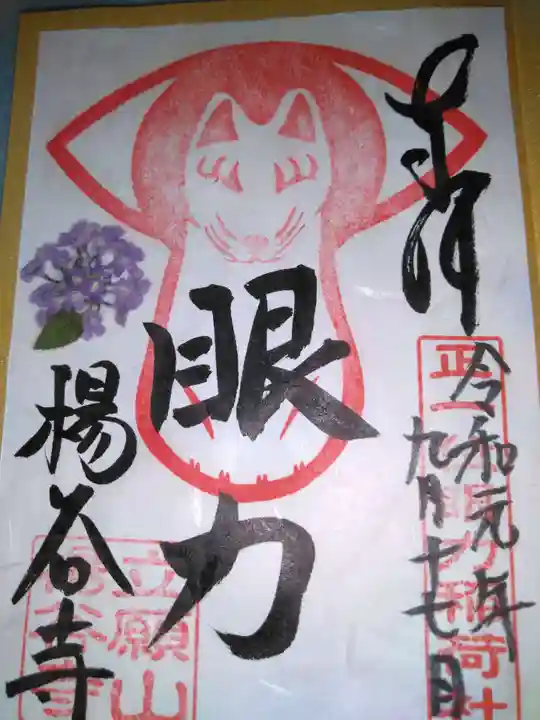 奉拝
令和元年
九月十七日
正一位眼力稲荷社
眼力
楊谷寺
立願山
楊谷寺